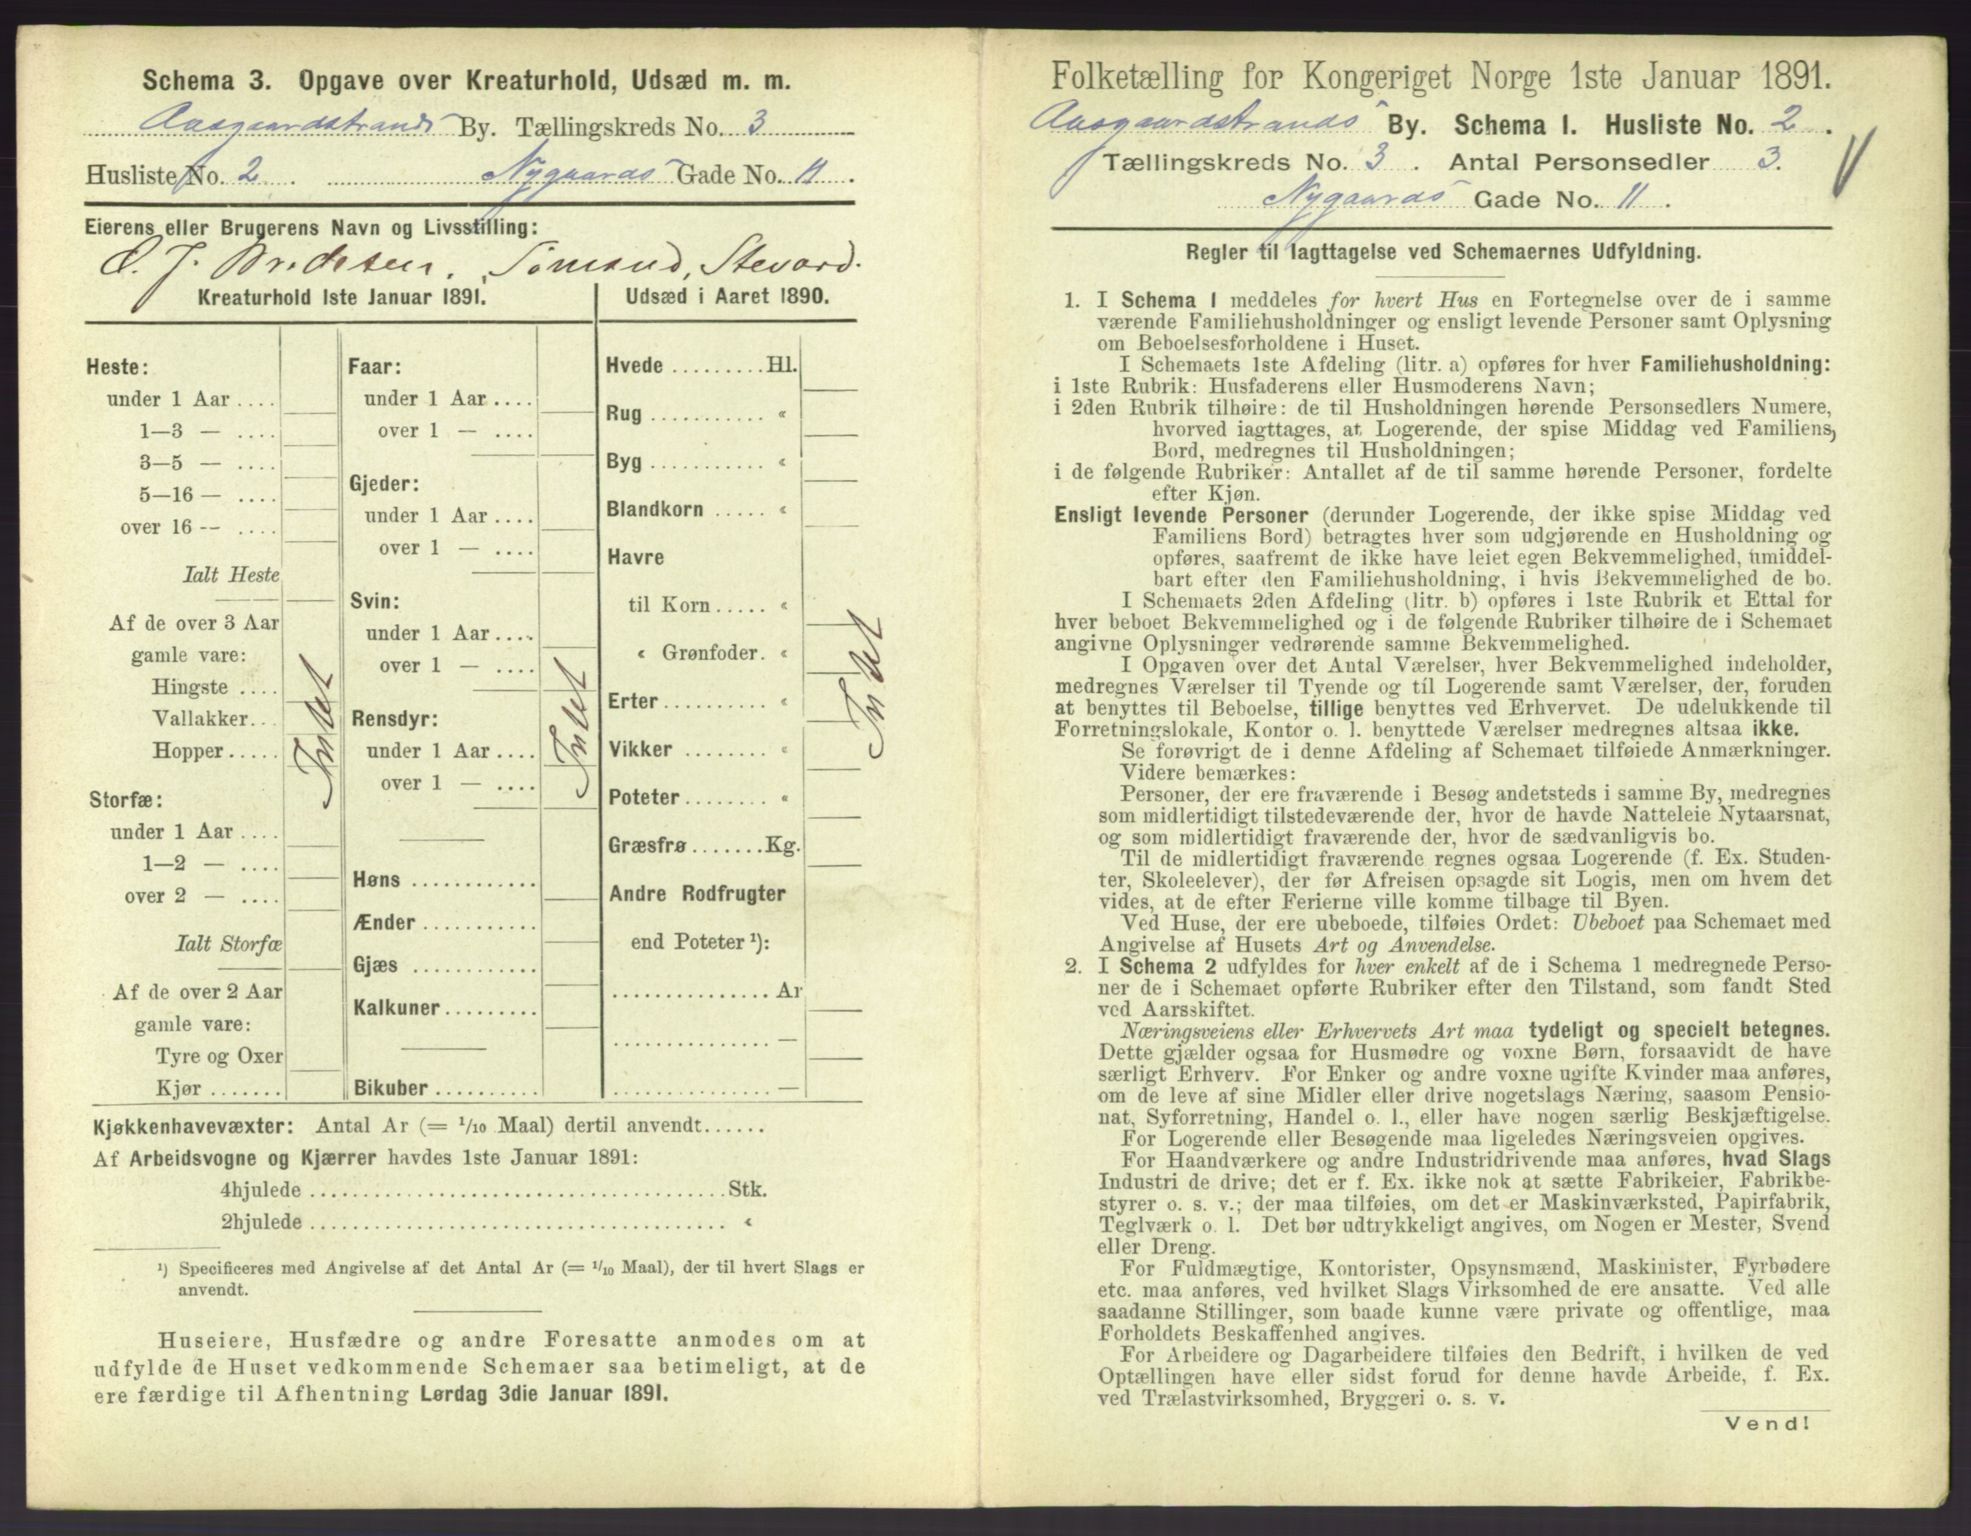 Schema 3. Opgave over Kreaturhold, Udsæd m. m.
Aasgaardstrands By. Tællingskreds No. 3
Husliste No. 2 . Nygaards Gade No. 11.
Eierens eller Brugerens Navn og Livsstilling:
O. J. Bredesen, Sömand, Stevard.
Kreaturhold 1ste Januar 1891.
Heste:
under 1 Aar ....
1—3 — ....
3—5 — ....
5—16 — ....
over 16 — ....
Ialt Heste
Af de over 3 Aar
gamle vare:
Hingste ....
Vallakker...
Hopper .....
Intet
Storfæ:
under 1 Aar ....
1—2 — ....
over 2 — ....
Ialt Storfæ
Af de over 2 Aar
gamle vare:
Tyre og Oxer
Kjør .......
Faar:
under 1 Aar ....
over 1 — ....
Gjeder:
under 1 Aar ....
over 1 — ....
Svin:
under 1 Aar ....
over 1 — ....
Rensdyr:
under 1 Aar ....
over 1 — ....
Intet
Høns ............
Ænder ...........
Gjæs ............
Kalkuner.........
Bikuber ..........
Udsæd i Aaret 1890.
Hvede .........Hl.
Rug ............ «
Byg ............ «
Blandkorn ..... «
Havre
til Korn ..... «
« Grønfoder. «
Erter .......... «
Vikker ......... «
Poteter ........ «
Græsfrø .......Kg.
Andre Rodfrugter
end Poteter ¹):
............... Ar
............... —
............... —
Intet
Kjøkkenhavevæxter: Antal Ar (= 1/10 Maal) dertil anvendt......
Af Arbeidsvogne og Kjærrer havdes 1ste Januar 1891:
4hjulede ........................................Stk.
2hjulede ........................................ «
¹) Specificeres med Angivelse af det Antal Ar (= 1/10 Maal), der til hvert Slags er
anvendt.
Huseiere, Husfædre og andre Foresatte anmodes om at
udfylde de Huset vedkommende Schemaer saa betimeligt, at de
ere færdige til Afhentning Lørdag 3die Januar 1891.
Folketælling for Kongeriget Norge 1ste Januar 1891.
Aasgaardstrands By. Schema 1. Husliste No. 2.
Tællingskreds No. 3. Antal Personsedler 3.
Nygaards Gade No. 11.
Regler til Iagttagelse ved Schemaernes Udfyldning.
1. I Schema 1 meddeles for hvert Hus en Fortegnelse over de i samme
værende Familiehusholdninger og ensligt levende Personer samt Oplysning
om Beboelsesforholdene i Huset.
I Schemaets 1ste Afdeling (litr. a) opføres for hver Familiehusholdning:
i 1ste Rubrik: Husfaderens eller Husmoderens Navn;
i 2den Rubrik tilhøire: de til Husholdningen hørende Personsedlers Numere,
hvorved iagttages, at Logerende, der spise Middag ved Familiens
Bord, medregnes til Husholdningen;
i de følgende Rubriker: Antallet af de til samme hørende Personer, fordelte
efter Kjøn.
Ensligt levende Personer (derunder Logerende, der ikke spise Middag ved
Familiens Bord) betragtes hver som udgjørende en Husholdning og
opføres, saafremt de ikke have leiet egen Bekvemmelighed, umiddel-
bart efter den Familiehusholdning, i hvis Bekvemmelighed de bo.
I Schemaets 2den Afdeling (litr. b) opføres i 1ste Rubrik et Ettal for
hver beboet Bekvemmelighed og i de følgende Rubriker tilhøire de i Schemaet
angivne Oplysninger vedrørende samme Bekvemmelighed.
I Opgaven over det Antal Værelser, hver Bekvemmelighed indeholder,
medregnes Værelser til Tyende og til Logerende samt Værelser, der, foruden
at benyttes til Beboelse, tillige benyttes ved Erhvervet. De udelukkende til
Forretningslokale, Kontor o. l. benyttede Værelser medregnes altsaa ikke.
Se forøvrigt de i denne Afdeling af Schemaet tilføiede Anmærkninger.
Videre bemærkes:
Personer, der ere fraværende i Besøg andetsteds i samme By, medregnes
som midlertidigt tilstedeværende der, hvor de havde Natteleie Nytaarsnat,
og som midlertidigt fraværende der, hvor de sædvanligvis bo.
Til de midlertidigt fraværende regnes ogsaa Logerende (f. Ex. Studen-
ter, Skoleelever), der før Afreisen opsagde sit Logis, men om hvem det
vides, at de efter Ferierne ville komme tilbage til Byen.
Ved Huse, der ere ubeboede, tilføies Ordet: Ubeboet paa Schemaet med
Angivelse af Husets Art og Anvendelse.
2. I Schema 2 udfyldes for hver enkelt af de i Schema 1 medregnede Perso-
ner de i Schemaet opførte Rubriker efter den Tilstand, som fandt Sted
ved Aarsskiftet.
Næringsveiens eller Erhvervets Art maa tydeligt og specielt betegnes.
Dette gjælder ogsaa for Husmødre og voxne Børn, forsaavidt de have
særligt Erhverv. For Enker og andre voxne ugifte Kvinder maa anføres,
om de leve af sine Midler eller drive nogetslags Næring, saasom Pensio-
nat, Syforretning, Handel o. l., eller have nogen særlig Beskjæftigelse.
For Logerende eller Besøgende maa ligeledes Næringsveien opgives.
For Haandværkere og andre Industridrivende maa anføres, hvad Slags
Industri de drive; det er f. Ex. ikke nok at sætte Fabrikeier, Fabrikbe-
styrer o. s. v.; der maa tilføies, om det er Maskinværksted, Papirfabrik,
Teglværk o. l. Det bør udtrykkeligt angives, om Nogen er Mester, Svend
eller Dreng.
For Fuldmægtige, Kontorister, Opsynsmænd, Maskinister, Fyrbødere
etc. maa anføres, ved hvilket Slags Virksomhed de ere ansatte. Ved alle
saadanne Stillinger, som baade kunne være private og offentlige, maa
Forholdets Beskaffenhed angives.
For Arbeidere og Dagarbeidere tilføies den Bedrift, i hvilken de ved
Optællingen have eller sidst forud for denne havde Arbeide, f. Ex.
ved Trælastvirksomhed, Bryggeri o. s. v.
Vend!